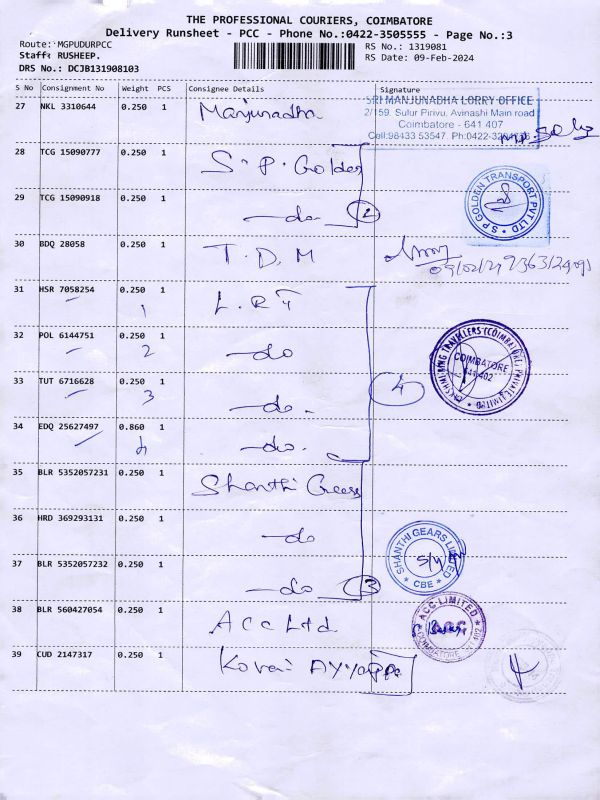 THE PROFESSIONAL COURIERS, COIMBATORE
Delivery Runsheet - PCC - Phone No.:0422-3505555 - Page No.:3
Route: MGPUDURPCC
RS No.: 1319081
Staff: RUSHEEP.
RS Date: 09-Feb-2024
DRS No.: DCJB131908103
S No Consignment No Weight PCS Consignee Details Signature
27 NKL 3310644 0.250 1 Manjunadha
SRI MANJUNADHA LORRY OFFICE
2/159, Sulur Pirivu, Avinashi Main road
Coimbatore - 641 407
Cell:98433 53547. Ph:0422-
28 TCG 15090777 0.250 1 S. P. Golden
29 TCG 15090918 0.250 1 -do- 2
S P GOLDEN TRANSPORT PVT LTD
30 BDQ 28058 0.250 1 T. D. M
31 HSR 7058254 0.250 1 L. R. T
1
32 POL 6144751 0.250 1 -do
2
COIMBATORE
641 402
33 TUT 6716628 0.250 1 -do-
3
4
34 EDQ 25627497 0.860 1 -do-
4
35 BLR 5352057231 0.250 1 Shanthi Gears
36 HRD 369293131 0.250 1 -do
SHANTHI GEARS LIMITED
CBE
37 BLR 5352057232 0.250 1 -do 3
38 BLR 560427054 0.250 1 ACC Ltd
ACC LIMITED
ACC
COIMBATORE
39 CUD 2147317 0.250 1 Kovai Ayyappa